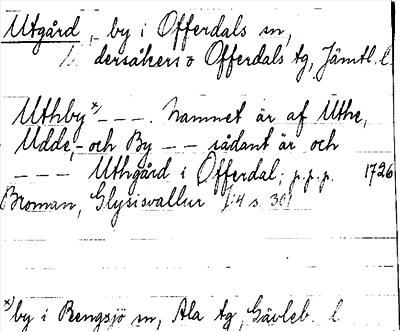 Utgård, - by i Offerdals sn,
dersåkers o Offerdals tg, Jämtl. l.
Uthby x) - - -. Namnet är af Uthe,
Udde, - och By - - sådant är och
- - - Uthgård i Offerdal; p.p.p. 1726
Broman, Glysisvallur 1:4 s. 30
x) by i Rengsjö sn, Ala tg, Gävleb. l